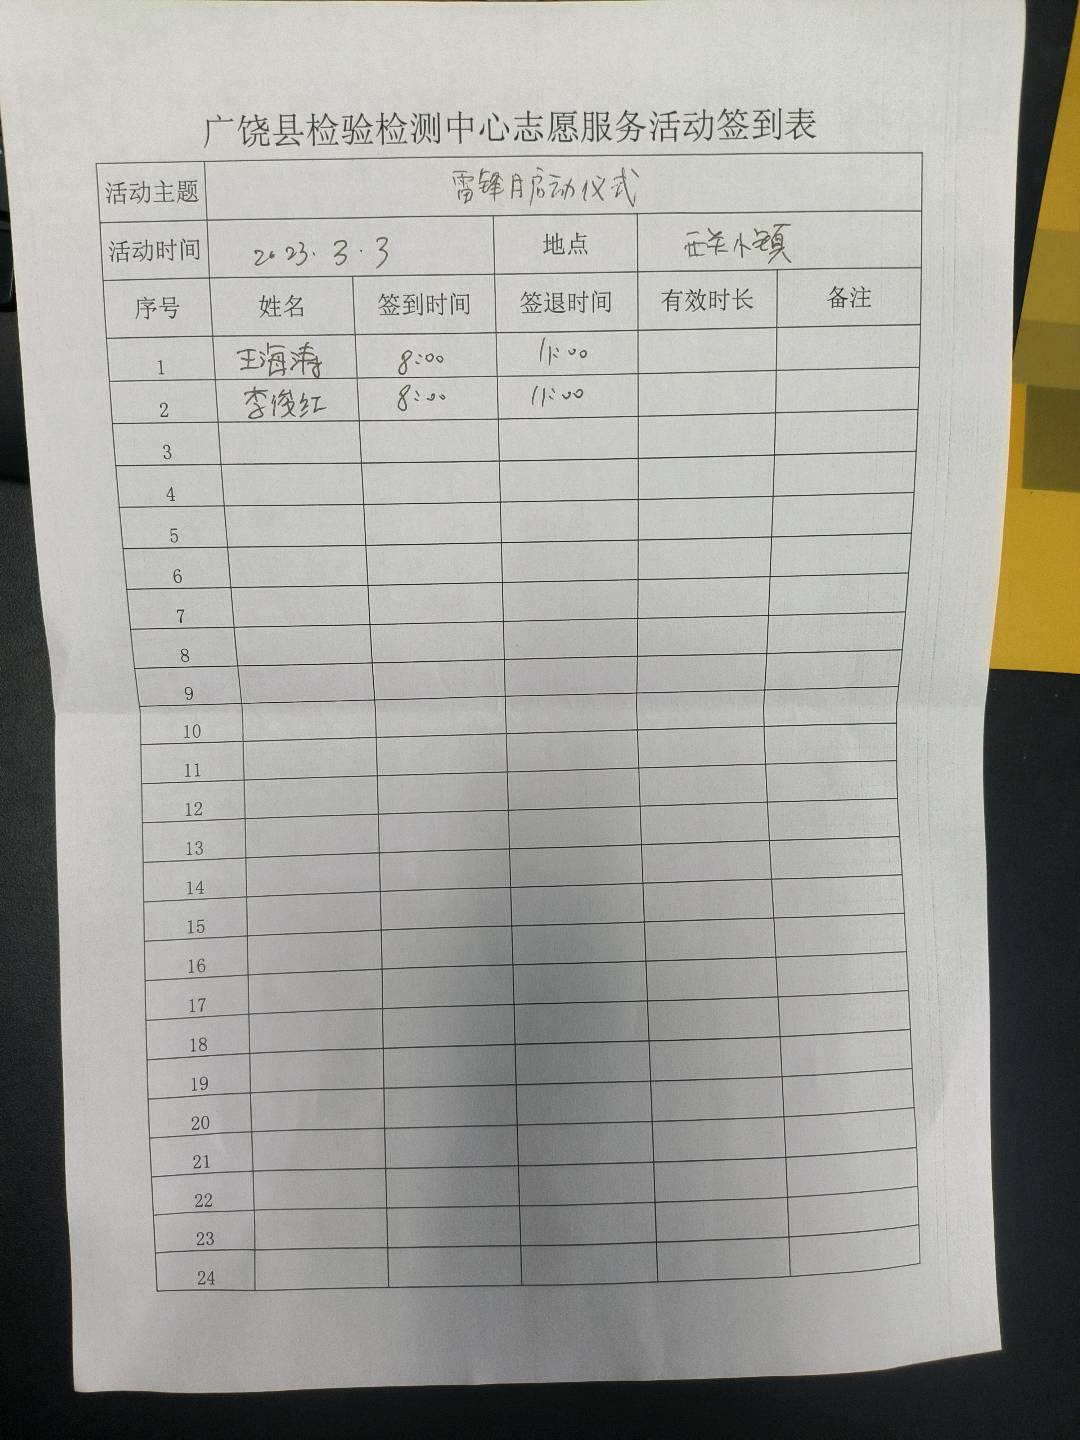 广饶县检验检测中心志愿服务活动签到表
活动主题 雷锋月启动仪式
活动时间 2023.3.3 地点 西关小镇
序号 姓名 签到时间 签退时间 有效时长 备注
1 王海涛 8:00 11:00
2 李俊红 8:00 11:00
3
4
5
6
7
8
9
10
11
12
13
14
15
16
17
18
19
20
21
22
23
24